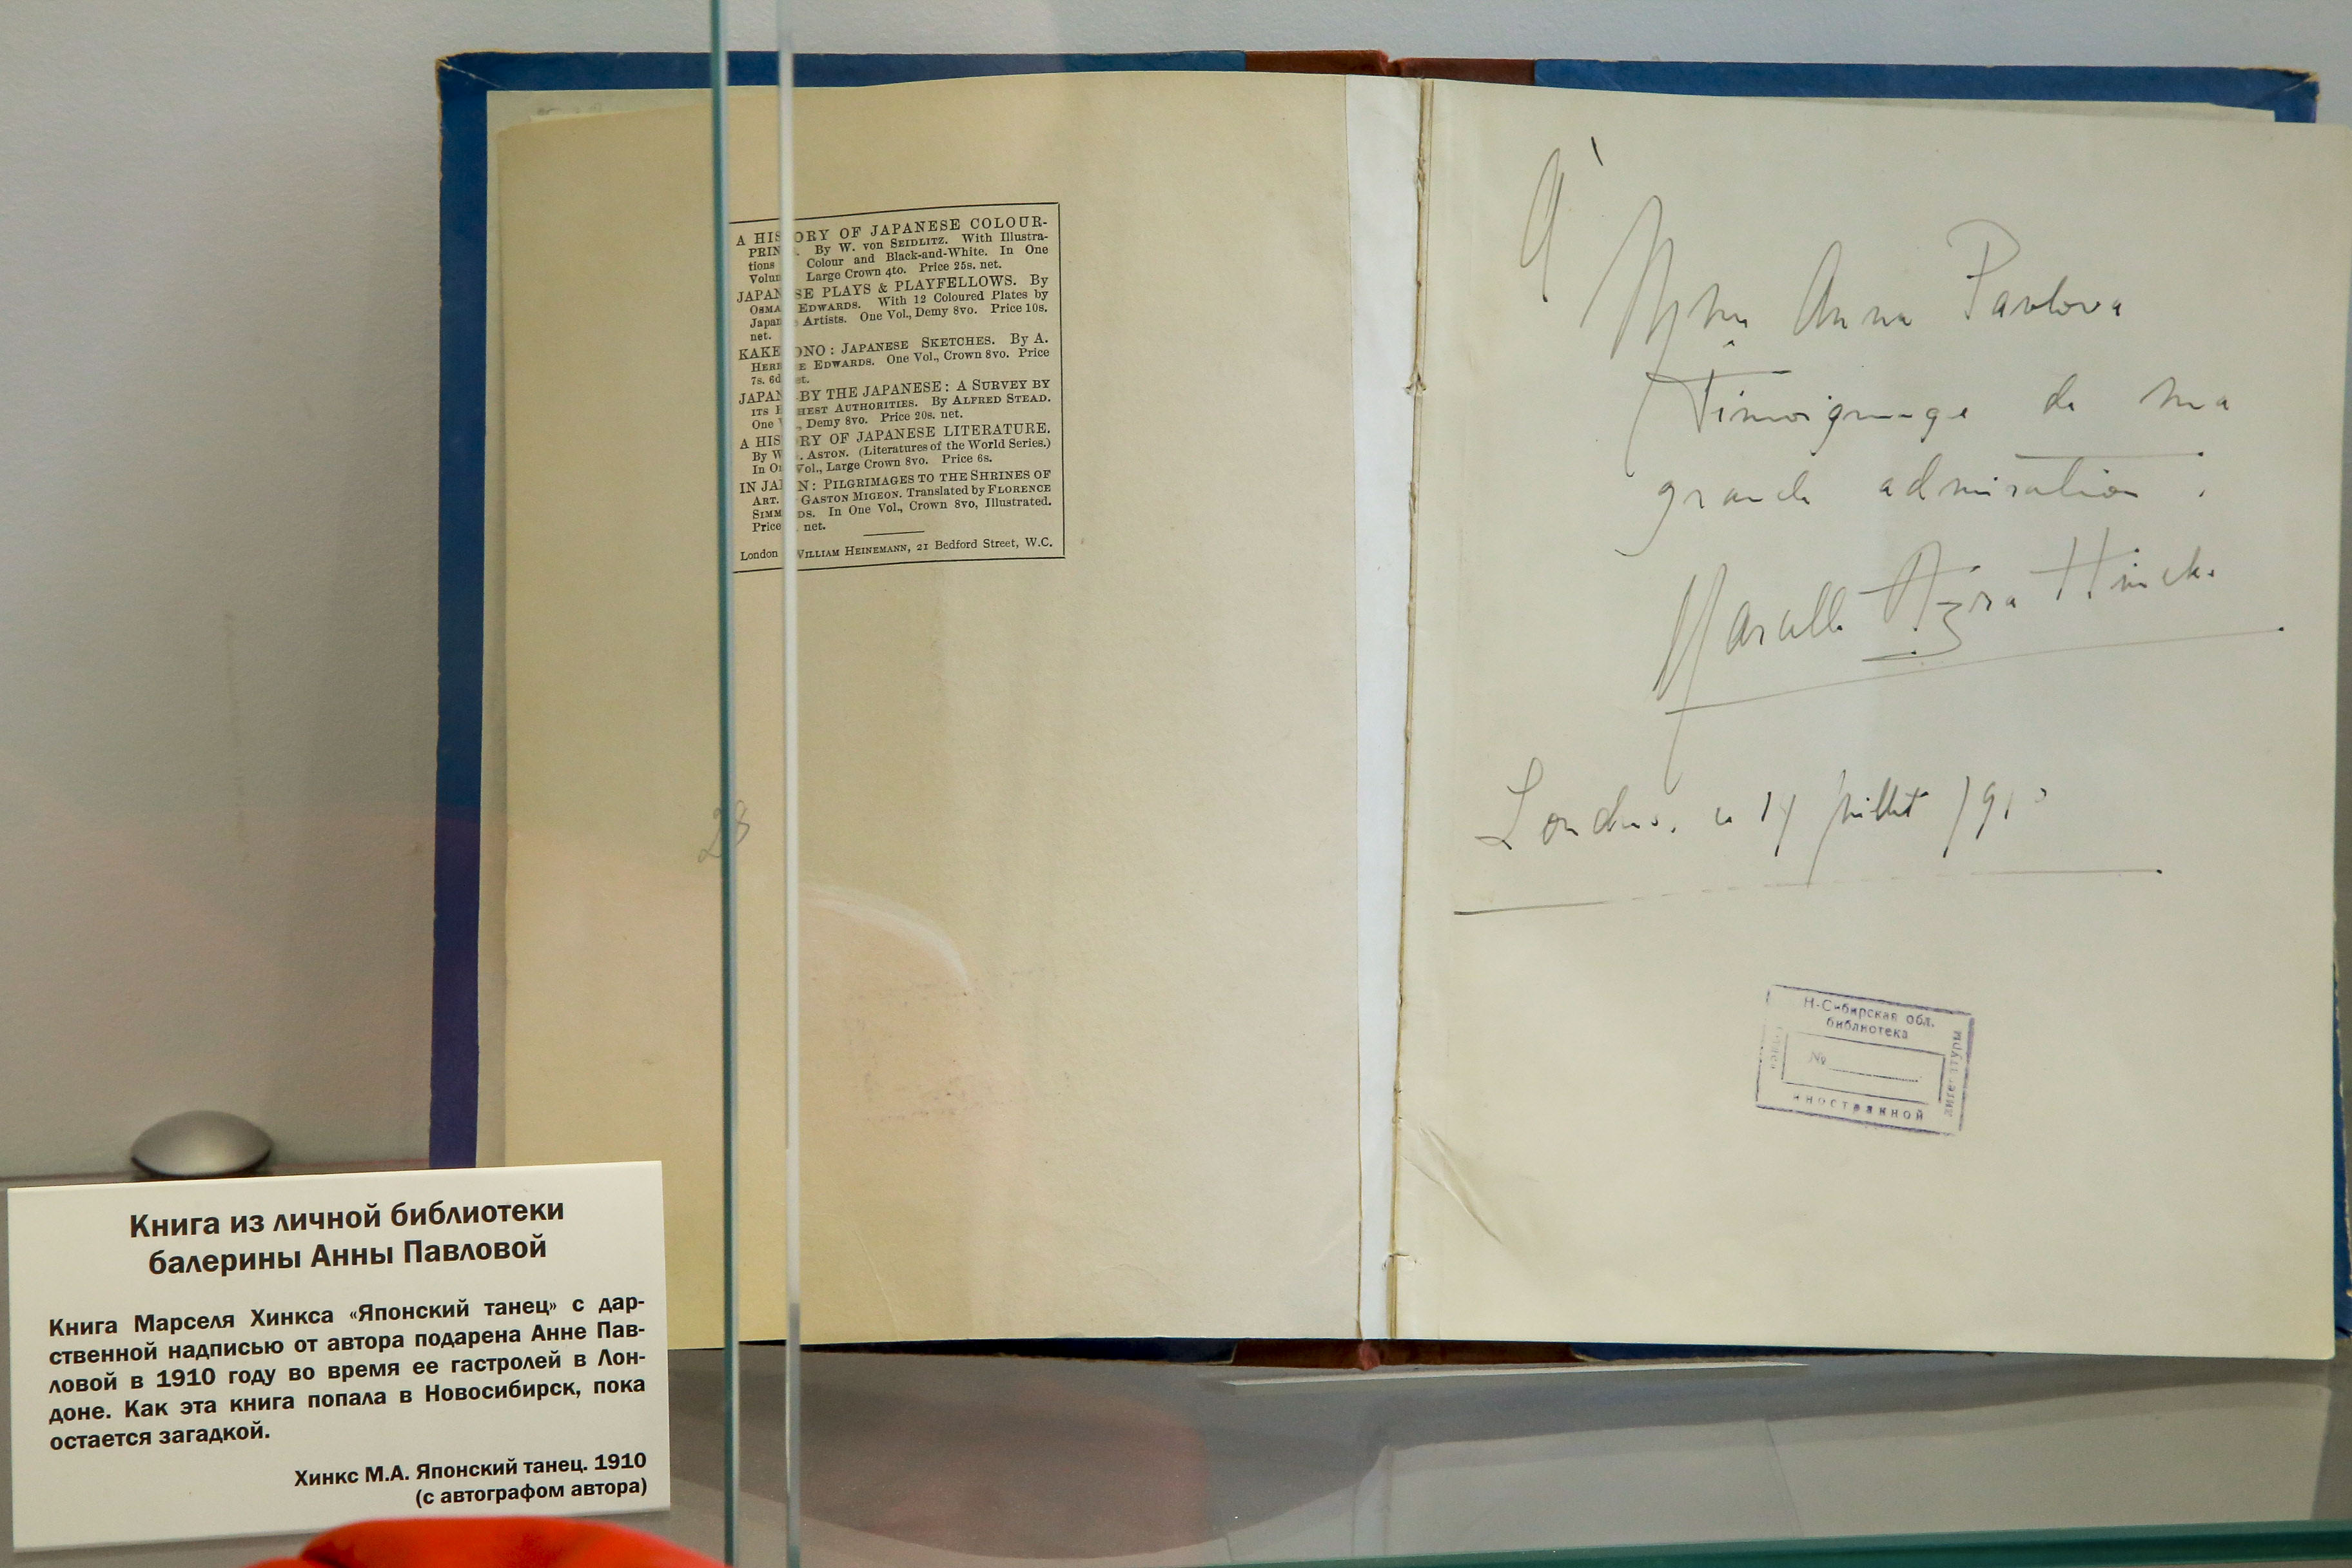 A HIS ORY OF JAPANESE COLOUR-
PRIN . By W. VON SEIDLITZ. With Illustra-
tions Colour and Black-and-White. In One
Volum Large Crown 4to. Price 25s. net.
JAPAN SE PLAYS & PLAYFELLOWS. By
OSMA EDWARDS. With 12 Coloured Plates by
Japan Artists. One Vol., Demy 8vo. Price 10s.
net.
KAKE ONO: JAPANESE SKETCHES. By A.
HERB E EDWARDS. One Vol., Crown 8vo. Price
7s. 6d et.
JAPAN BY THE JAPANESE: A SURVEY BY
ITS HEST AUTHORITIES. By ALFRED STEAD.
One , Demy 8vo. Price 20s. net.
A HIS RY OF JAPANESE LITERATURE.
By W . ASTON. (Literatures of the World Series.)
In O Vol., Large Crown 8vo. Price 6s.
IN JA N: PILGRIMAGES TO THE SHRINES OF
ART. GASTON MIGEON. Translated by FLORENCE
SIMM DS. In One Vol., Crown 8vo, Illustrated.
Price net.
London WILLIAM HEINEMANN, 21 Bedford Street, W.C.
23
À
Mme Anna Pavlova
Témoignage de ma
grande admiration.
Marcelle Azra Hincks
Londres, le 14 juillet 1910
Н-Сибирская обл.
библиотека
№
иностранной
литературы
Книга из личной библиотеки
балерины Анны Павловой
Книга Марселя Хинкса «Японский танец» с дар-
ственной надписью от автора подарена Анне Пав-
ловой в 1910 году во время ее гастролей в Лон-
доне. Как эта книга попала в Новосибирск, пока
остается загадкой.
Хинкс М.А. Японский танец. 1910
(с автографом автора)